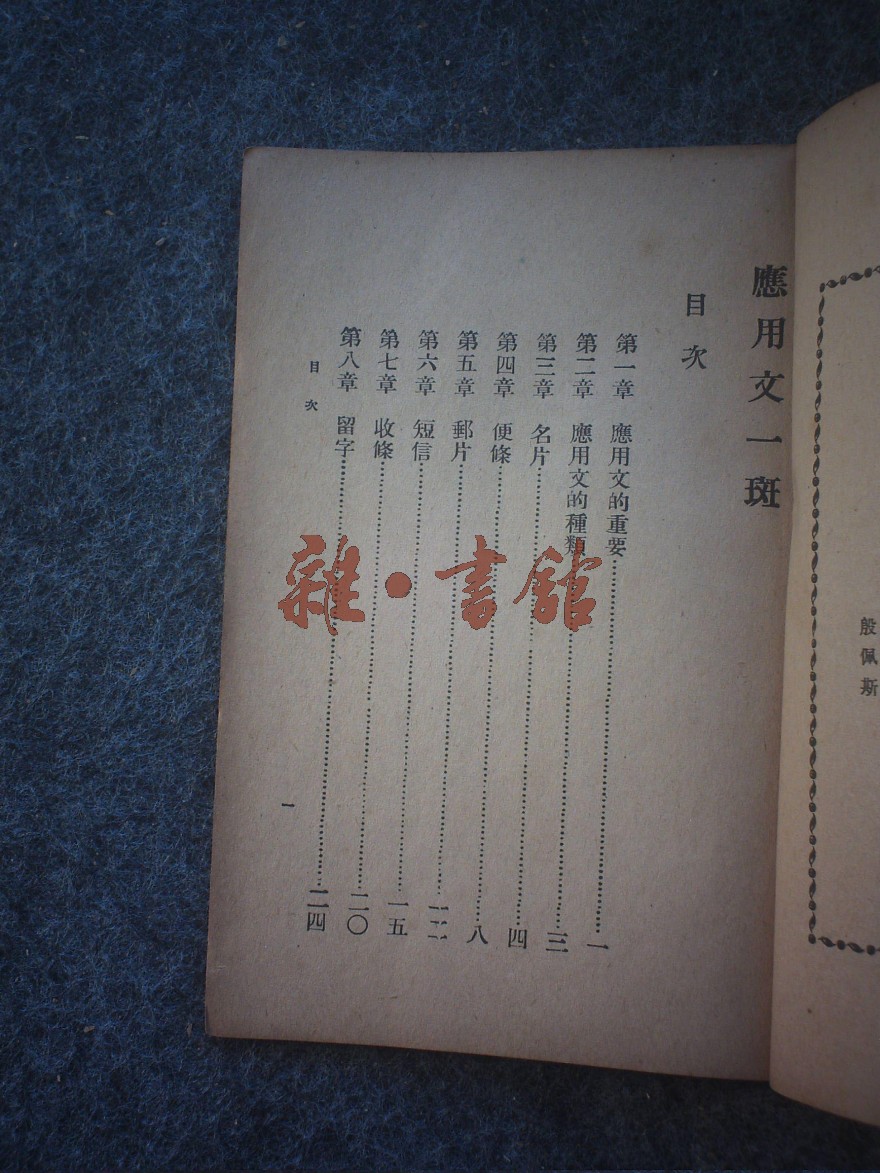 殷佩斯
應用文一斑
目次
第一章 應用文的重要………一
第二章 應用文的種類………三
第三章 名片………四
第四章 便條………八
第五章 郵片………一二
第六章 短信………一五
第七章 收條………二〇
第八章 留字………二四
目次
一
雜·書館